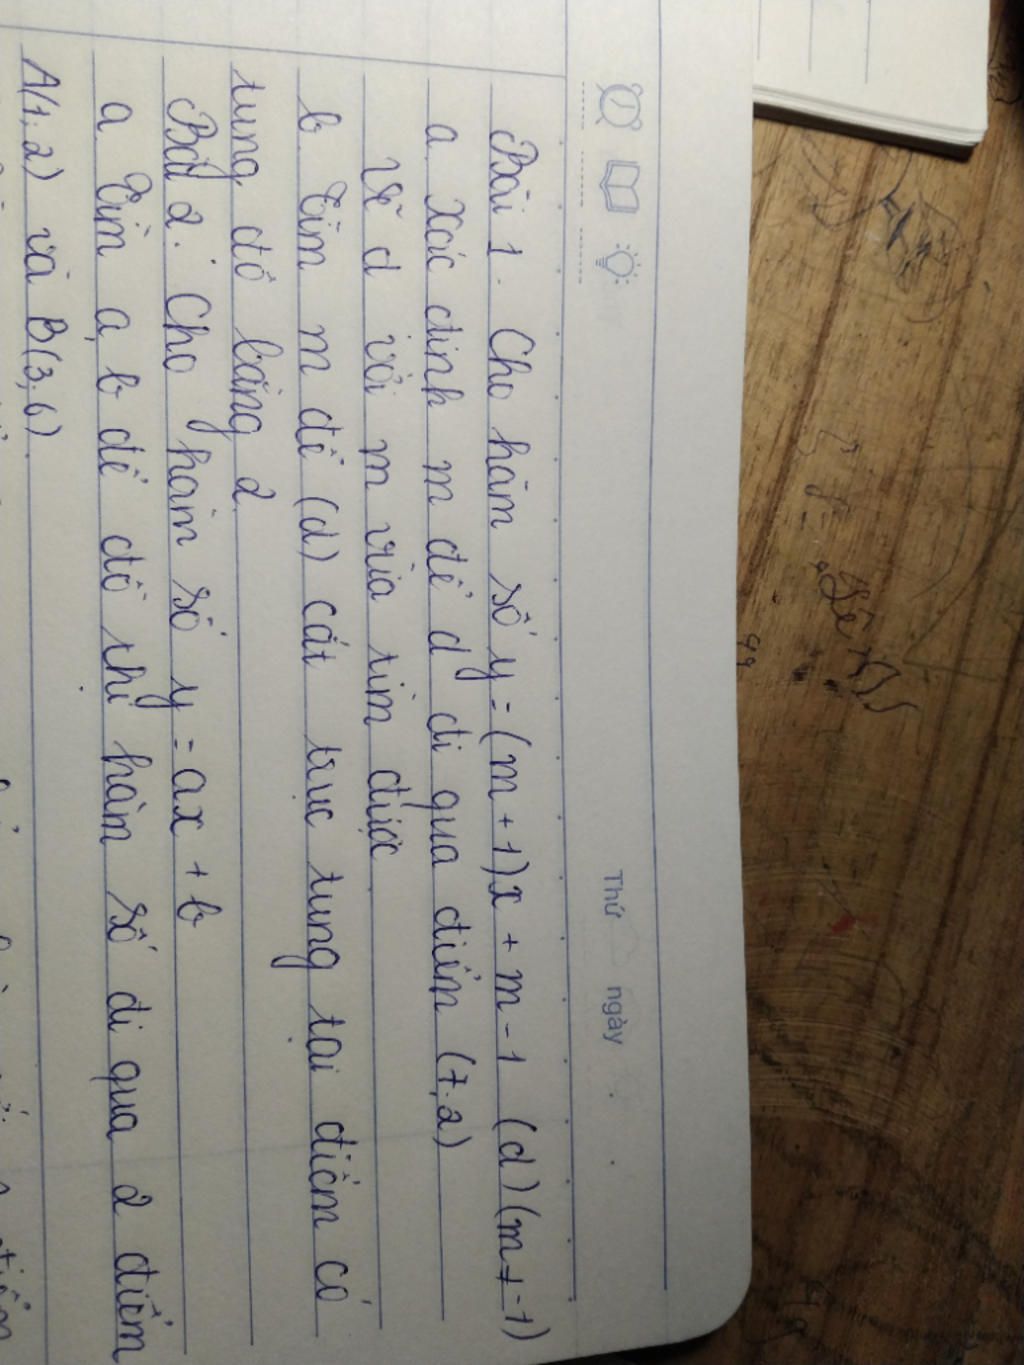 Thứ ngày
Bài 1. Cho hàm số y = (m + 1)x + m - 1 (d) (m ≠ -1)
a. Xác định m để d đi qua điểm (7;2)
Vẽ d với m vừa tìm được
b. Tìm m để (d) cắt trục tung tại điểm có
tung độ bằng 2.
Bài 2. Cho hàm số y = ax + b
a Tìm a, b để đồ thị hàm số đi qua 2 điểm
A(1;2) và B(3;6).